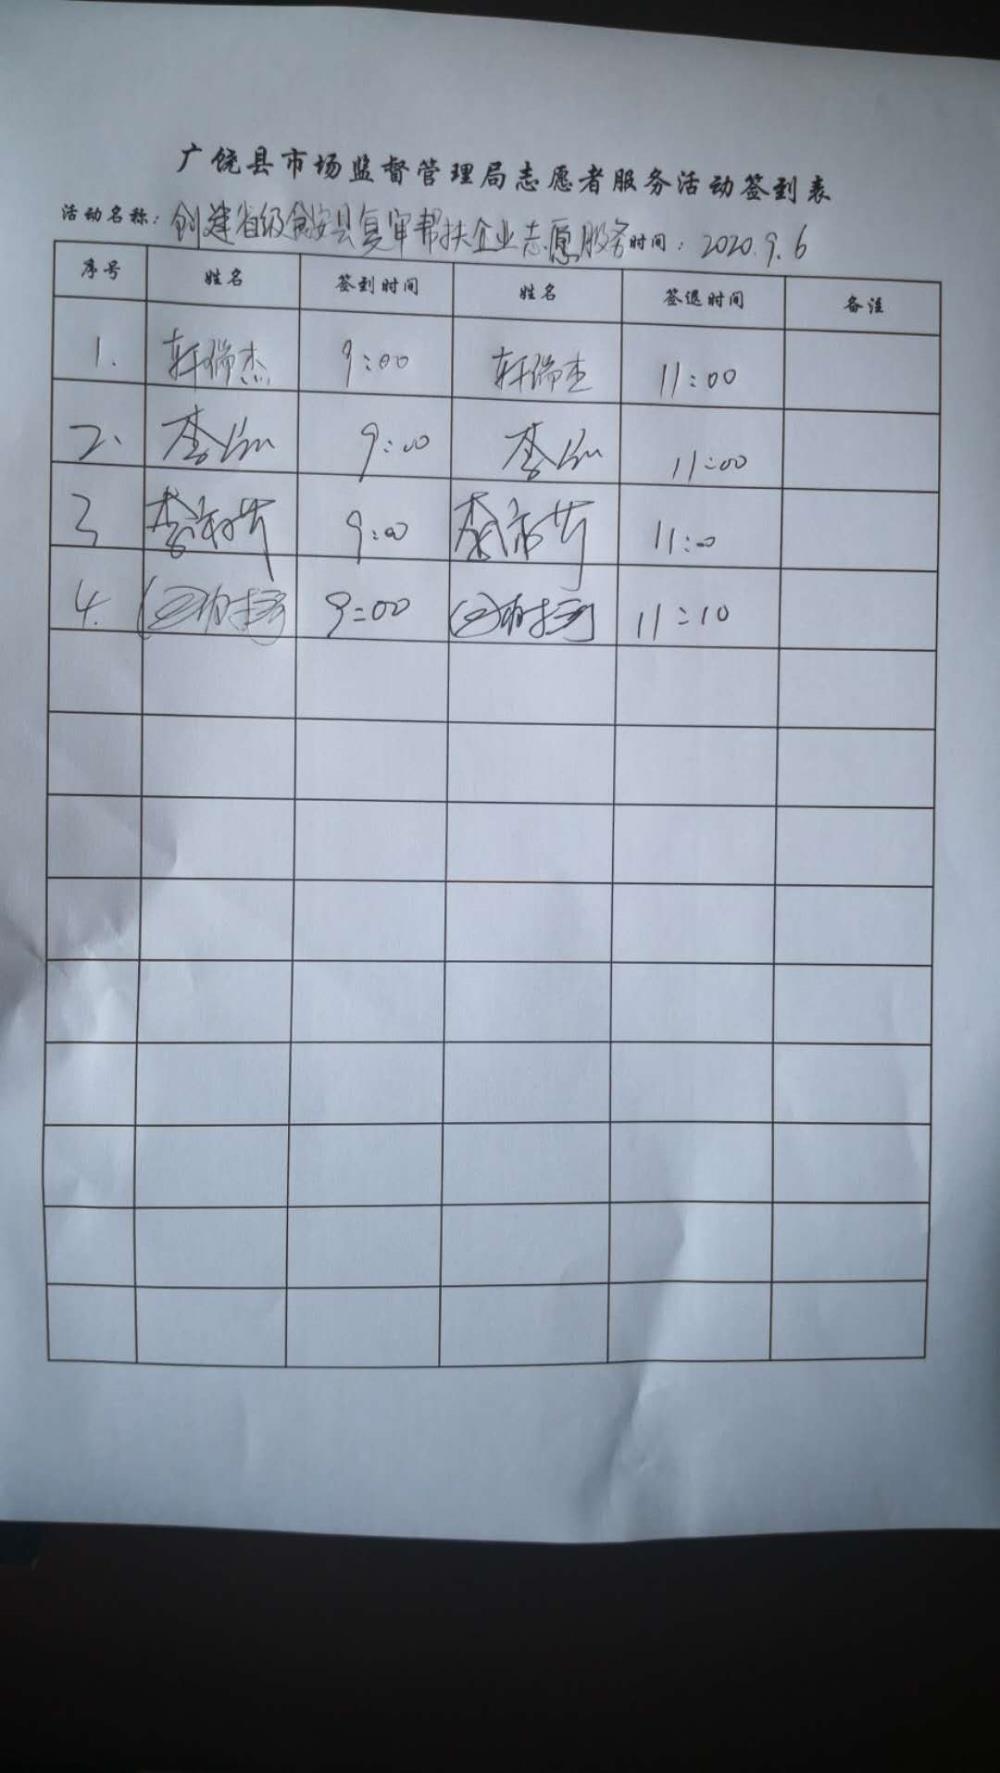 广饶县市场监督管理局志愿者服务活动签到表
活动名称：创建省级食安县复审帮扶企业志愿服务 时间：2020.9.6
序号 姓名 签到时间 姓名 签退时间 备注
1. 轩瑞杰 9:00 轩瑞杰 11:00
2. 李 9:00 李 11:00
3 李 9:00 李 11:00
4. 9:00 11:10